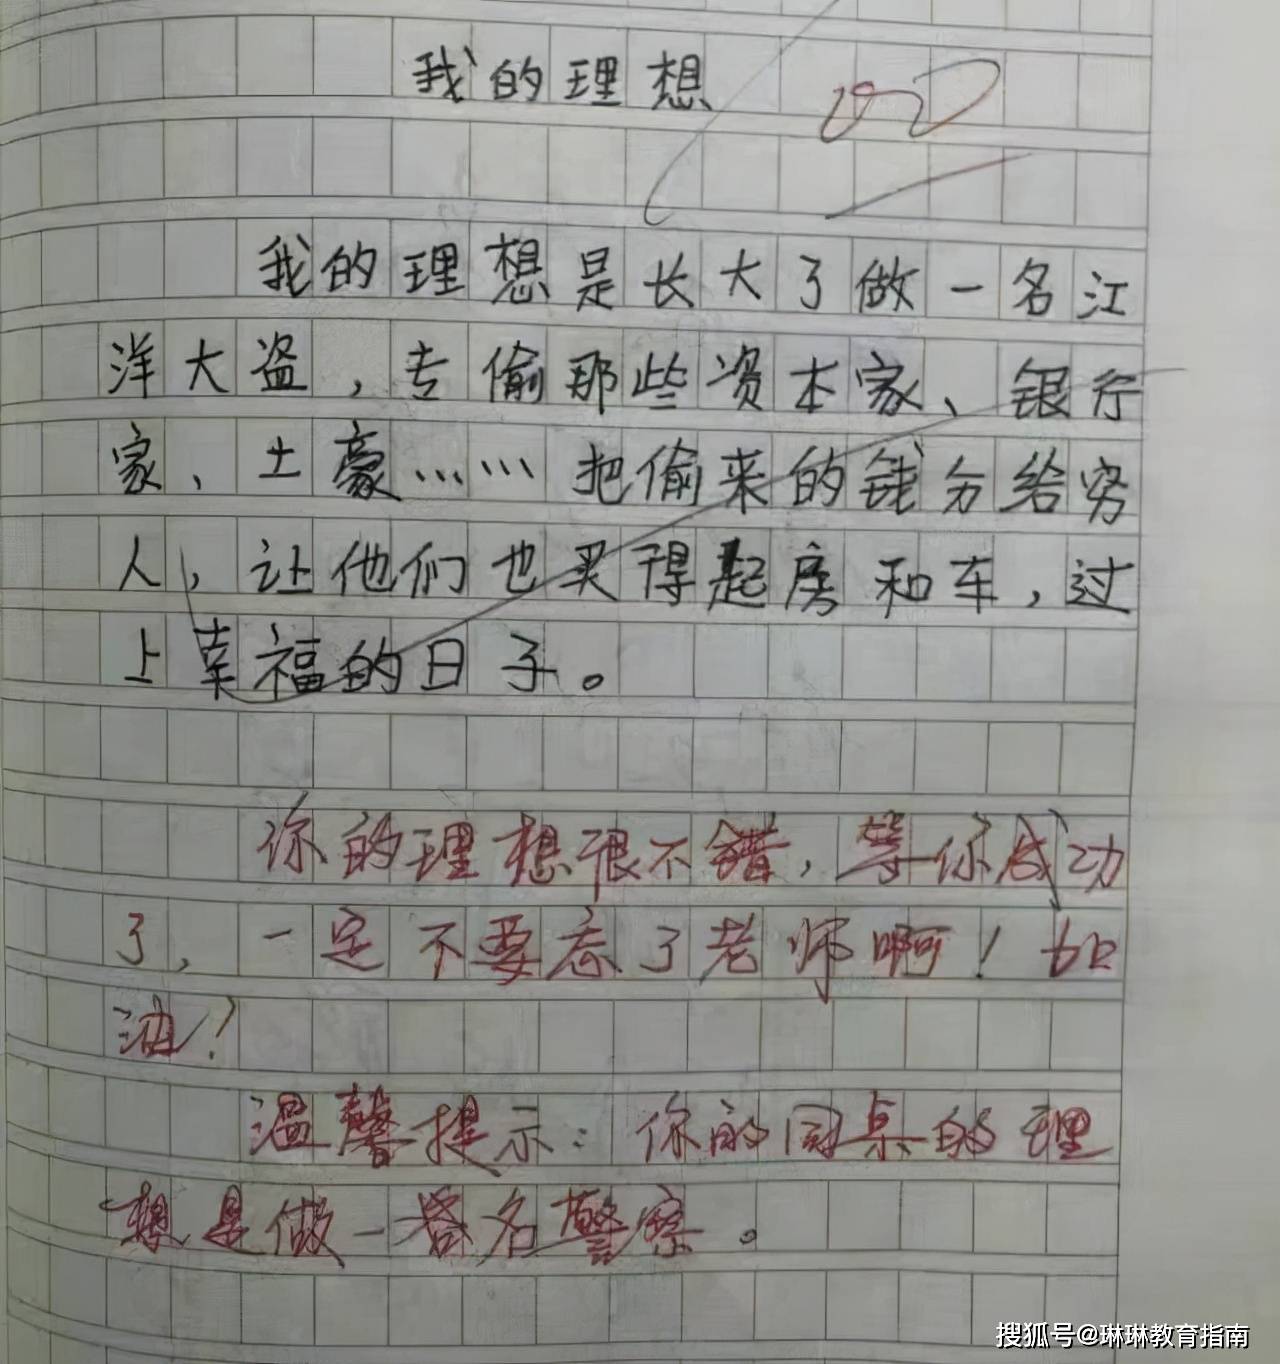 我的理想
我的理想是长大了做一名江
洋大盗，专偷那些资本家、银行
家、土豪……把偷来的钱分给穷
人，让他们也买得起房和车，过
上幸福的日子。
你的理想很不错，等你成功
了，一定不要忘了老师啊！加
油！
温馨提示：你的同桌的理
想是做一名警察。
搜狐号@琳琳教育指南